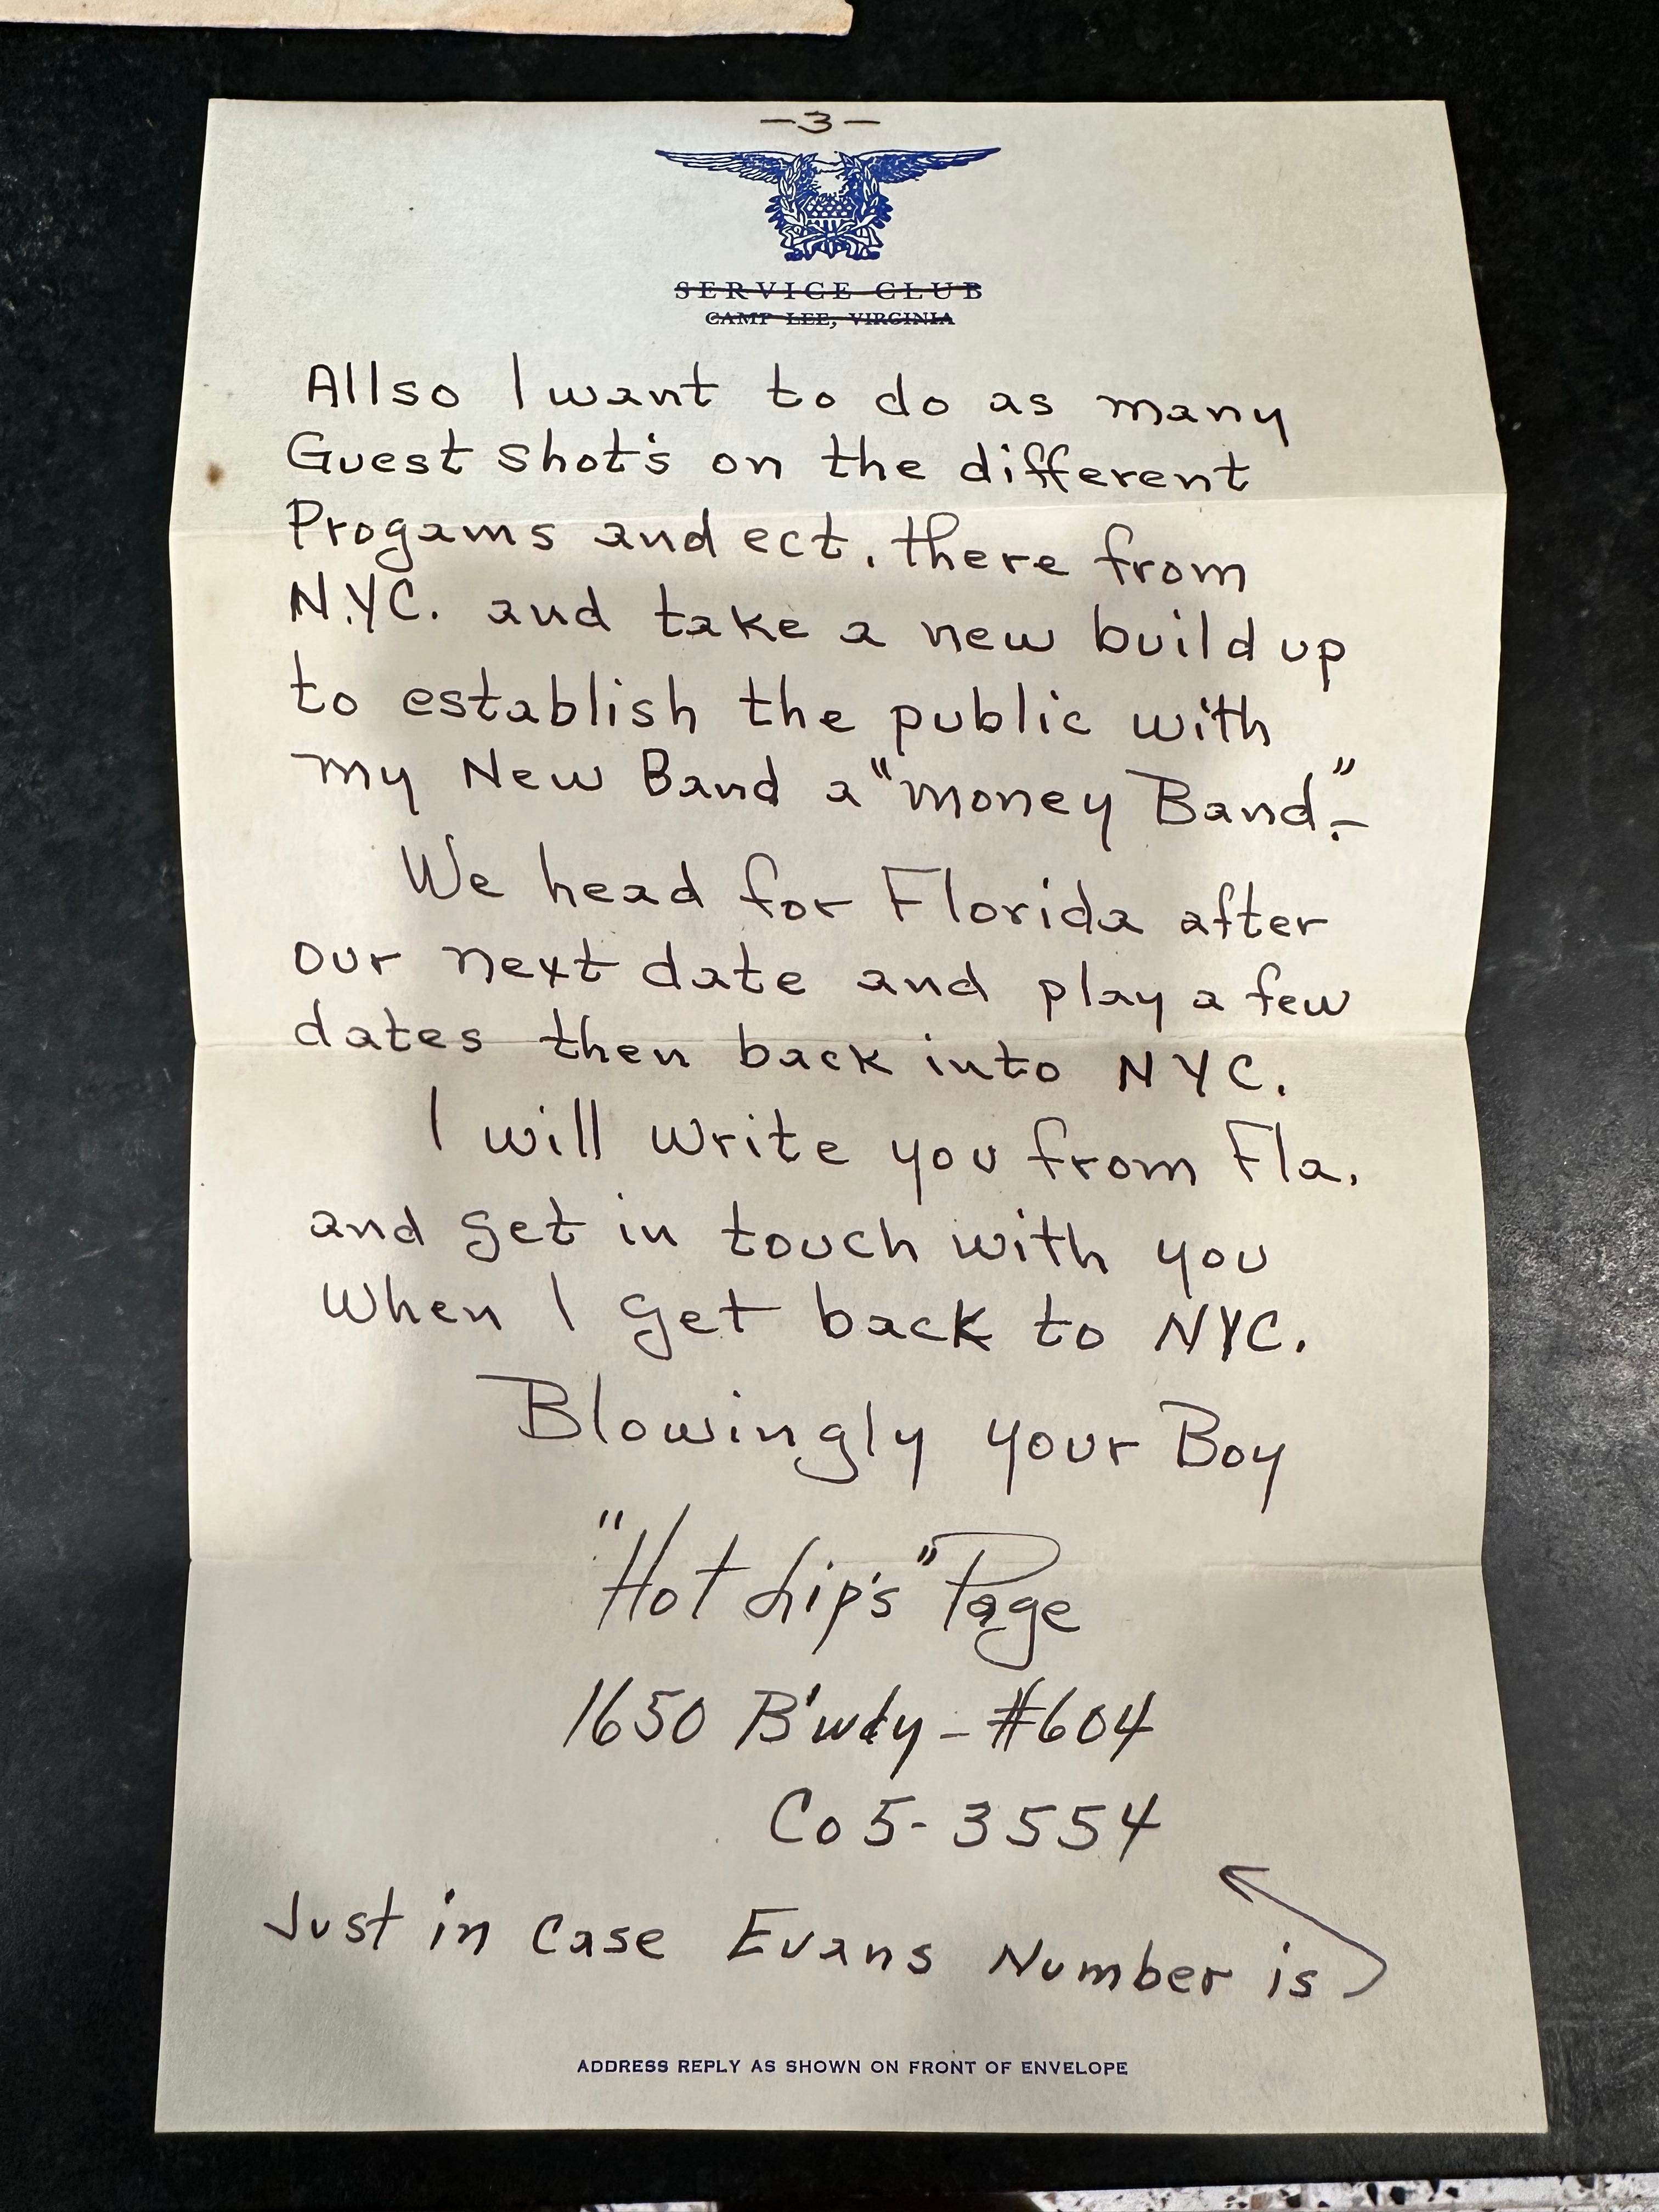 -3-
SERVICE CLUB
CAMP LEE, VIRGINIA
Allso I want to do as many
Guest shot's on the different
Progams and ect. there from
N.Y.C. and take a new build up
to establish the public with
my New Band a "money Band."-
We head for Florida after
our next date and play a few
dates then back into NYC.
I will write you from Fla.
and get in touch with you
when I get back to NYC.
Blowingly your Boy
"Hot Lip's" Page
1650 B'wdy - #604
Co 5-3554
Just in Case Evans Number is
ADDRESS REPLY AS SHOWN ON FRONT OF ENVELOPE